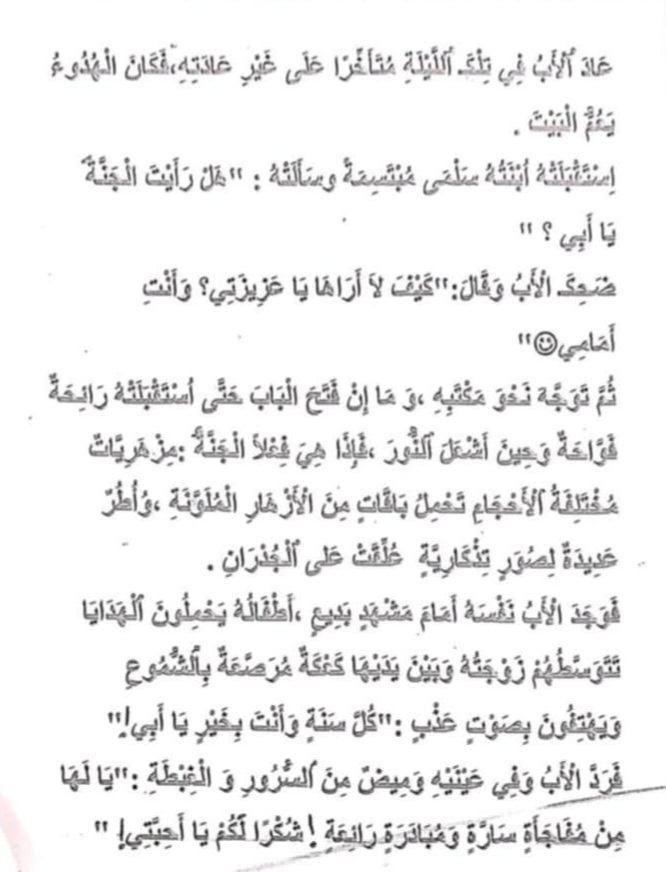 عَادَ ٱلْأَبُ فِي تِلْكَ ٱللَّيْلَةِ مُتَأَخِّرًا عَلَى غَيْرِ عَادَتِهِ،فَكَانَ الْهُدُوءُ
يَعُمُّ الْبَيْتَ .
اِسْتَقْبَلَتْهُ ٱبْنَتُهُ سَلْمَى مُبْتَسِمَةً وسَأَلَتْهُ : "هَلْ رَأَيْتَ الْجَنَّةَ
يَا أَبِي ؟ "
ضَحِكَ الْأَبُ وَقَالَ:"كَيْفَ لاَ أَرَاهَا يَا عَزِيزَتِي؟ وَأَنْتِ
أَمَامِي☺"
ثُمَّ تَوَجَّهَ نَحْوَ مَكْتَبِهِ ،وَ مَا إِنْ فَتَحَ الْبَابَ حَتَّى ٱسْتَقْبَلَتْهُ رَائِحَةٌ
فَوَّاحَةٌ وَحِينَ أَشْعَلَ ٱلنُّورَ ،فَإِذَا هِيَ فِعْلاً الْجَنَّةُ :مِزْهَرِيَّاتٌ
مُخْتَلِفَةُ ٱلْأَحْجَامِ تَحْمِلُ بَاقَاتٍ مِنَ الْأَزْهَارِ الْمُلَوَّنَةِ ،وُأُطُرٌ
عَدِيدَةٌ لِصُوَرٍ تِذْكَارِيَّةٍ عُلِّقَتْ عَلى ٱلْجُدْرَانِ .
فَوَجَدَ الْأَبُ نَفْسَهُ أَمَامَ مَشْهَدٍ بَدِيعٍ ،أَطْفَالُهُ يَحْمِلُونَ ٱلْهَدَايَا
تَتَوَسَّطُهُمْ زَوْجَتُهُ وَبَيْنَ يَدَيْهَا كَعْكَةٌ مُرَصَّعَةٌ بِٱلشُّمُوعِ
وَيَهْتِفُونَ بِصَوْتٍ عَذْبٍ :"كُلَّ سَنَةٍ وَأَنْتَ بِخَيْرٍ يَا أَبِي!"
فَرَدَّ الْأَبُ وَفِي عَيْنَيْهِ وَمِيضٌ مِنَ ٱلسُّرُورِ وَ الْغِبْطَةِ :"يَا لَهَا
مِنْ مُفَاجَأَةٍ سَارَّةٍ وَمُبَادَرَةٍ رَائِعَةٍ ! شُكْرًا لَكُمْ يَا أَحِبَّتِي! "